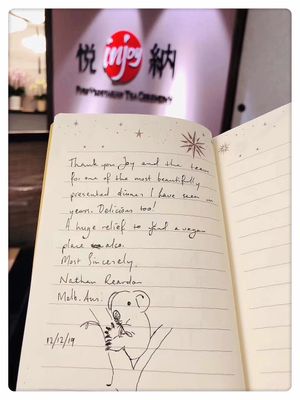 悦 injoy 納
PURE VEGETARIAN TEA CEREMONY
Thank you Joy and the team
for one of the most beautifully
presented dinners I have seen in
years. Delicious too!
A huge relief to find a vegan
place also.
Most Sincerely.
Nathan Reardon
Melb. Aus.
12/12/19